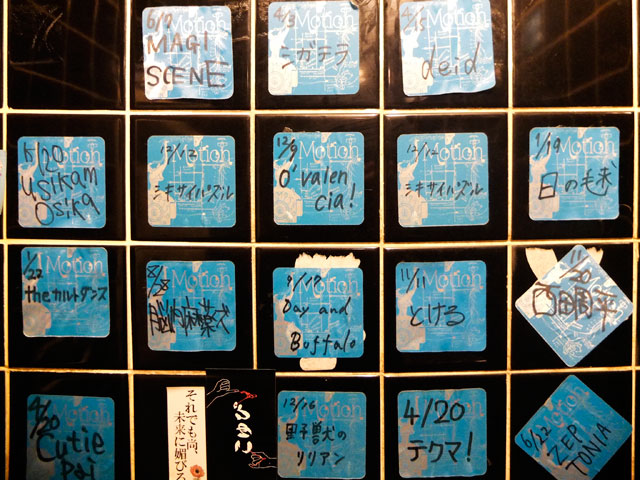 6/9
Motion
MAGI
SCENE
4/3
Motion
シガテラ
4/15
Motion
deid
5/20
Motion
Usikam
Osika
12/12
Motion
ミキサイハズル
12/9
Motion
O'valen
cia!
12/12
Motion
ミキサイハズル
1/19
Motion
日の毛布
1/22
Motion
theカルトダンス
8/28
Motion
脳内麻薬 
Motion
Day and
Buffalo
11/11
Motion
とける
11/20
西田周平
4/20
Motion
Cutie
Pai
それでも尚、
未来に媚びる
12/16
Motion
野獣の
リリアン
Motion
4/20
テクマ!
6/22
Motion
ZEP
TONIA